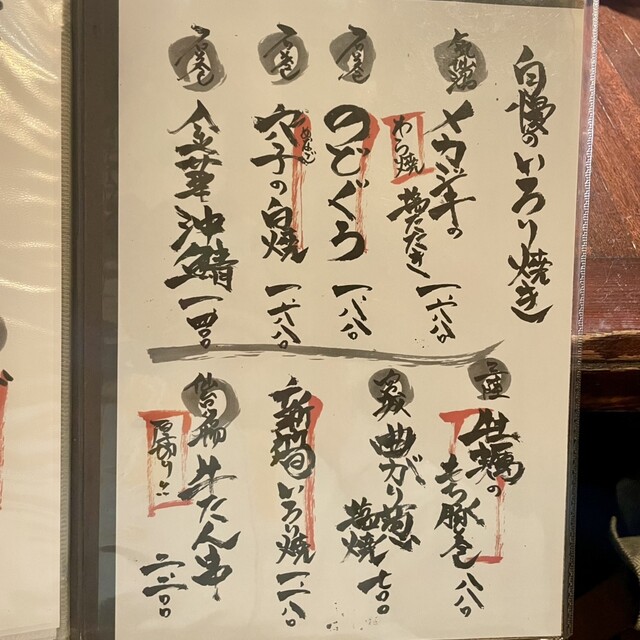 自慢のいろり焼き
気仙沼
メカジキの
わら焼
藁たたき
一、六八〇
石巻
のどぐろ
一、八八〇
石巻
穴子の白焼
一、六八〇
石巻
金華沖鯖
一、一四〇
三陸
牡蠣の
もち豚巻
八八〇
宮城
曲がり葱
塩焼
七〇〇
いろり焼
一、二八〇
仙台
牛たん串
厚切り
二、二〇〇